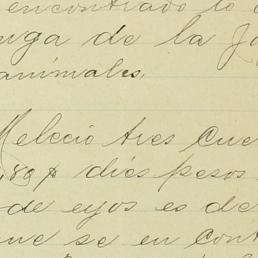 encontrado lo
uga de la
animales.
Melecio Ares Cue
89 dies pesos
de eyos es de
que se en cont